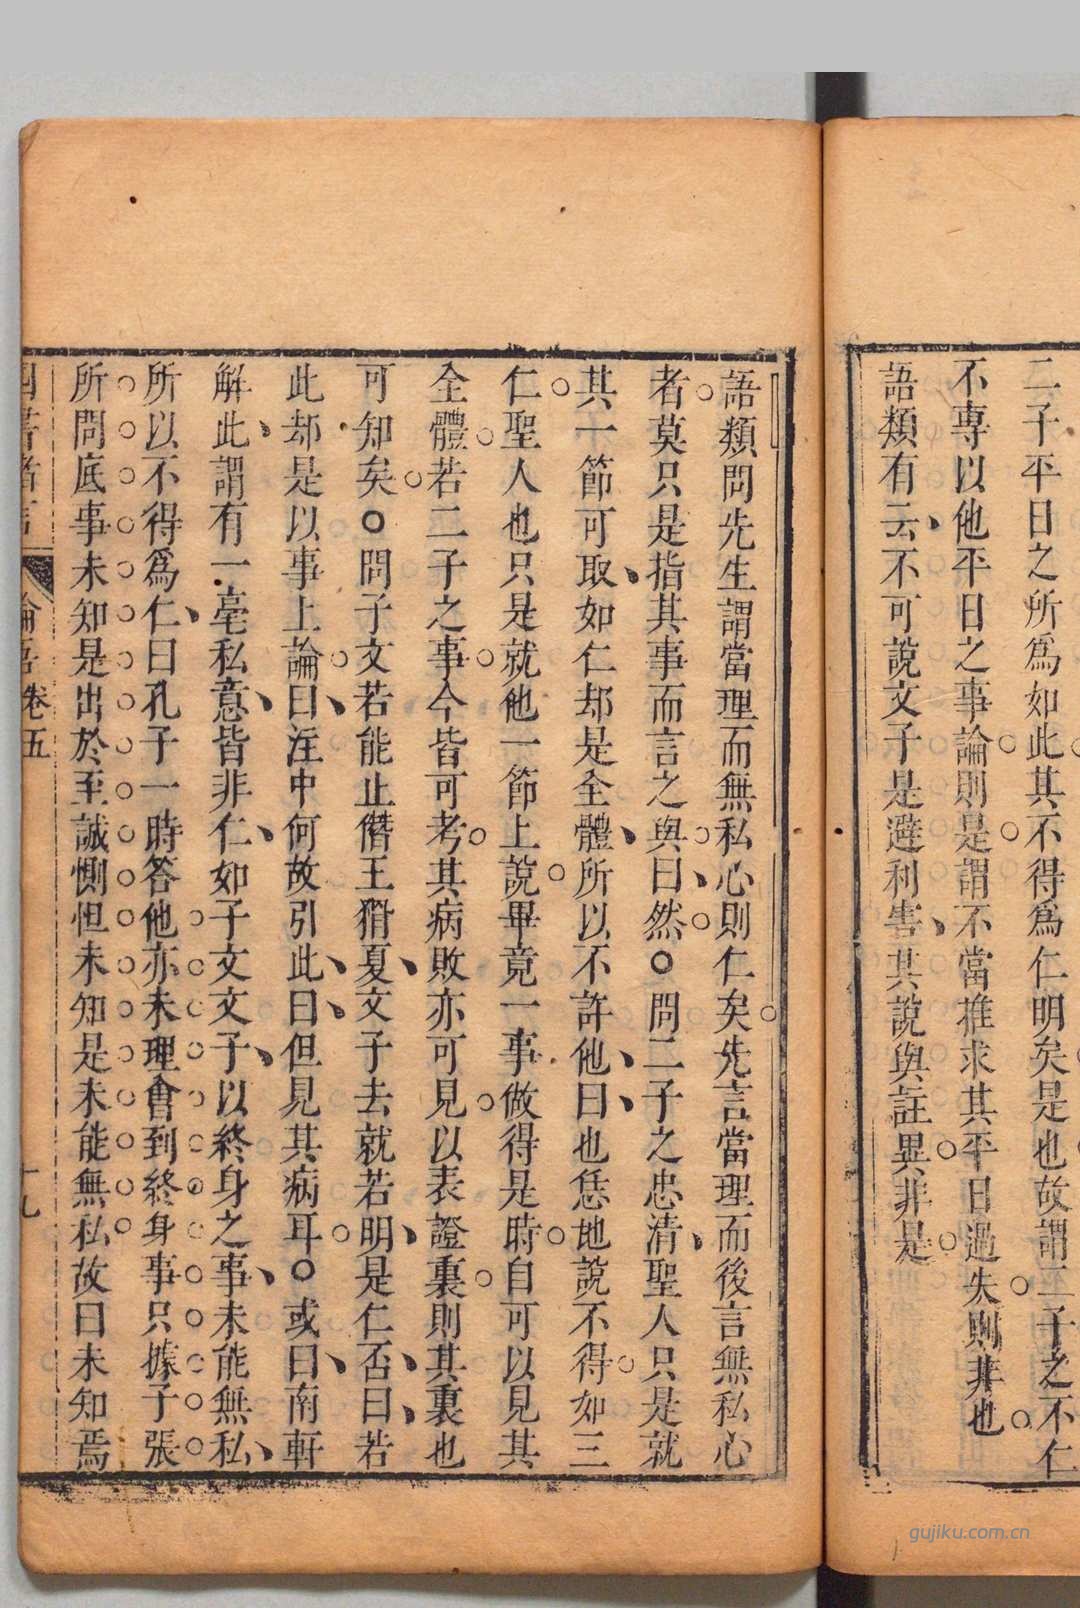 二子平日之所爲如此其不得爲仁明矣是也故謂二子之不仁
不專以他平日之事論則是謂不當推求其平日過失則非也
語類有云不可說文子是避利害其說與註異非是
語類問先生謂當理而無私心則仁矣先言當理而後言無私心
者莫只是指其事而言之與曰然○問二子之忠清聖人只是就
其一節可取如仁却是全體所以不許他曰也恁地說不得如三
仁聖人也只是就他一節上說畢竟一事做得是時自可以見其
全體若二子之事今皆可考其病敗亦可見以表證裏則其裏也
可知矣○問子文若能止僭王猾夏文子去就若明是仁否曰若
此却是以事上論曰注中何故引此曰但見其病耳○或曰南軒
解此謂有一毫私意皆非仁如子文文子以終身之事未能無私
所以不得爲仁曰孔子一時答他亦未理會到終身事只據子張
所問底事未知是出於至誠惻怛未知是未能無私故曰未知焉
四書 論語卷五 十九
gujiku.com.cn